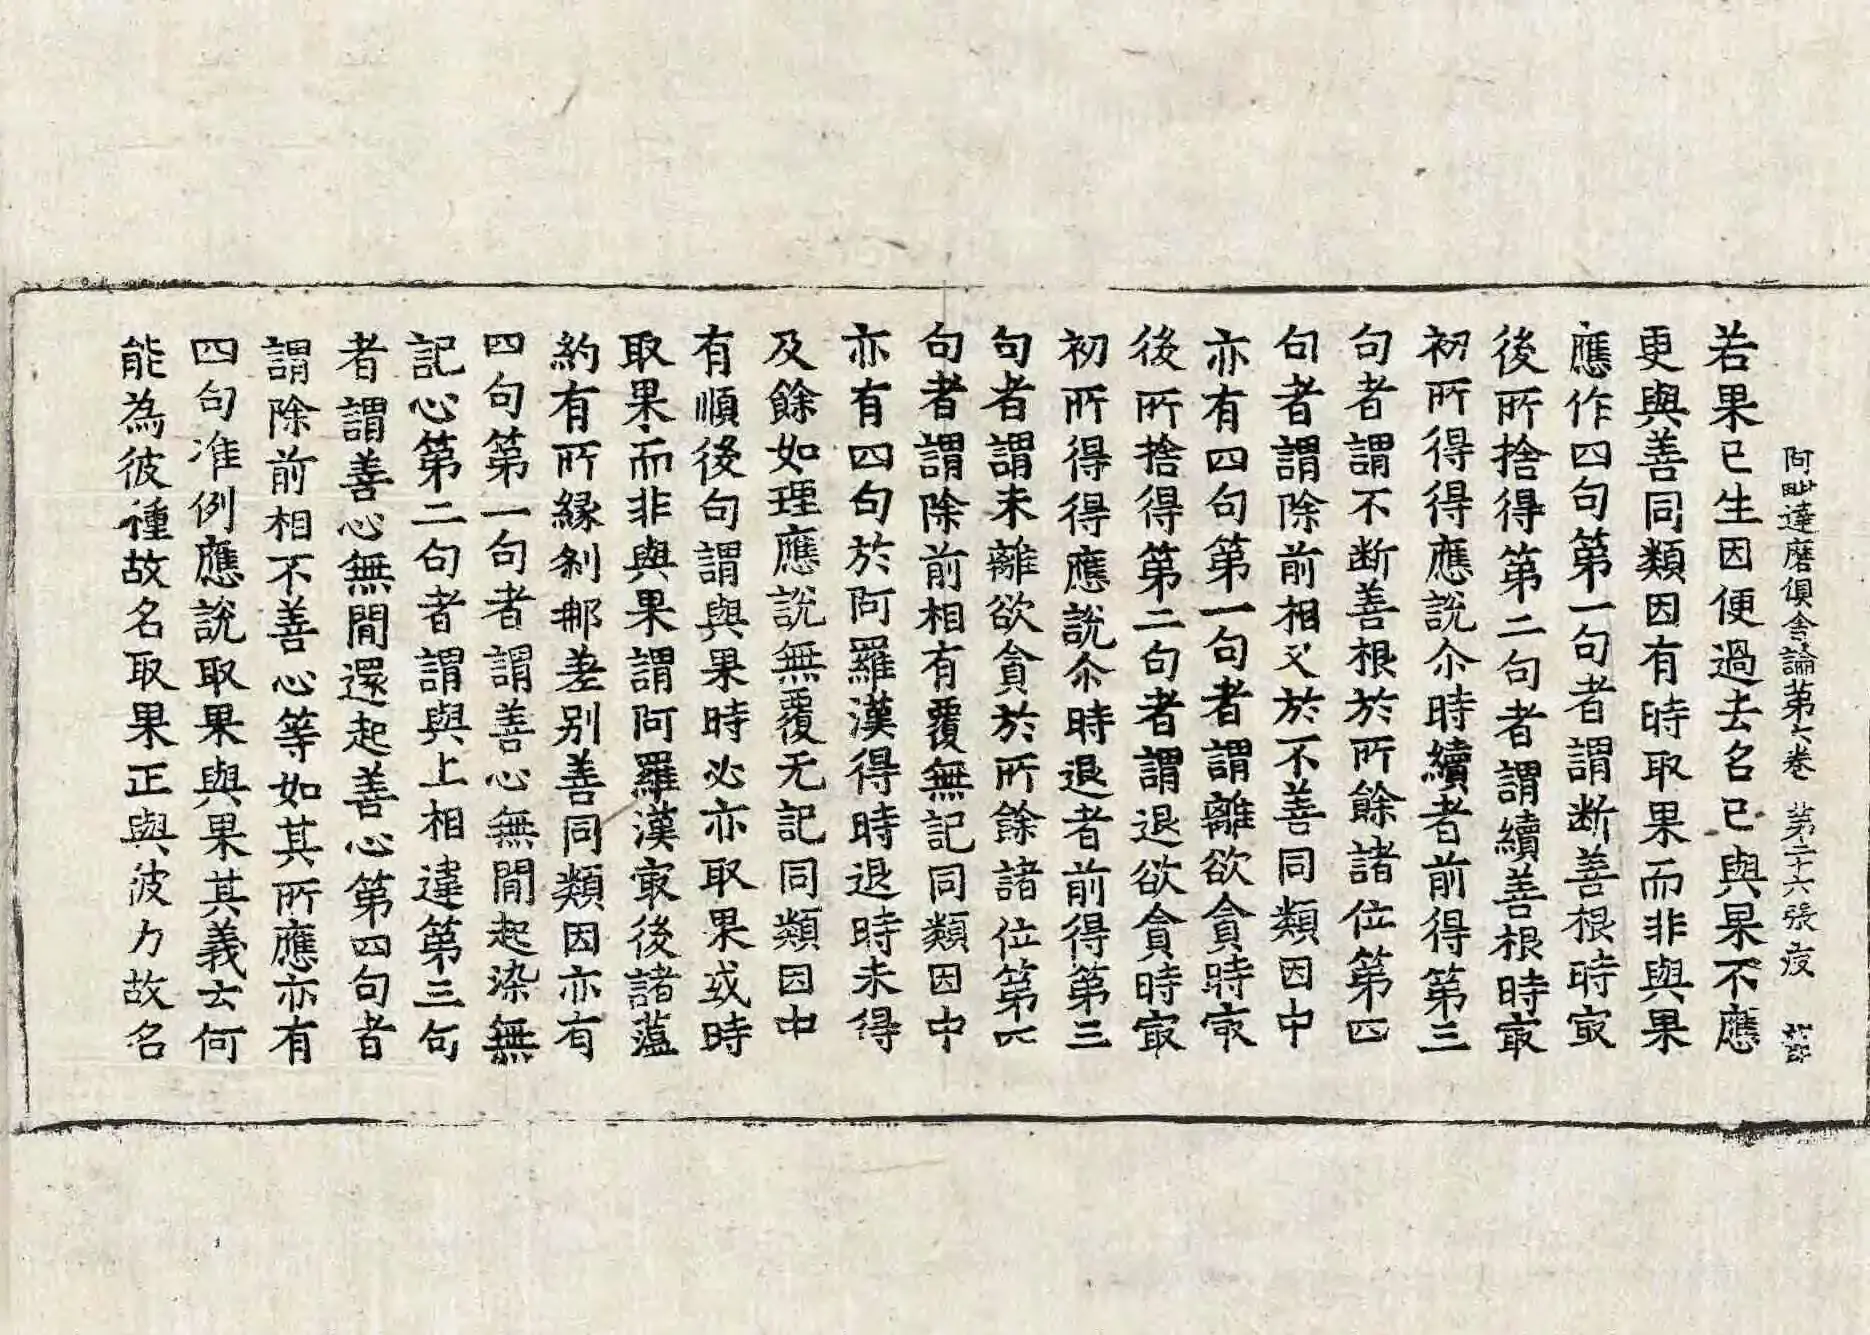 阿毗達磨俱舍論第六卷 第二十六張 疲
若果已生因便過去名已與果不應
更與善同類因有時取果而非與果
應作四句第一句者謂斷善根時㝡
後所捨得第二句者謂續善根時㝡
初所得得應說尒時續者前得第三
句者謂不斷善根於所餘諸位第四
句者謂除前相又於不善同類因中
亦有四句第一句者謂離欲貪時㝡
後所捨得第二句者謂退欲貪時㝡
初所得得應說尒時退者前得第三
句者謂未離欲貪於所餘諸位第四
句者謂除前相有覆無記同類因中
亦有四句於阿羅漢得時退時未得
及餘如理應說無覆无記同類因中
有順後句謂與果時必亦取果或時
取果而非與果謂阿羅漢㝡後諸蘊
約有所緣剎那差別善同類因亦有
四句第一句者謂善心無間起染無
記心第二句者謂與上相違第三句
者謂善心無間還起善心第四句者
謂除前相不善心等如其所應亦有
四句准例應說取果與果其義云何
能為彼種故名取果正與彼力故名